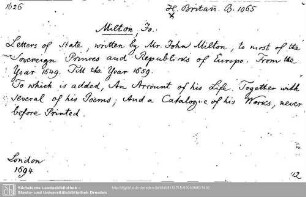 1626
H. Britan. B. 1065
Milton, Jo.
Letters of State, written by Mr. John Milton, to most of the
Sovereign Princes and Republicks of Europe. From the
Year 1649. Till the Year 1659.
To which is added, An Account of his Life. Together with
several of his Poems; And a Catalogue of his Works, never
before Printed.
London
1694